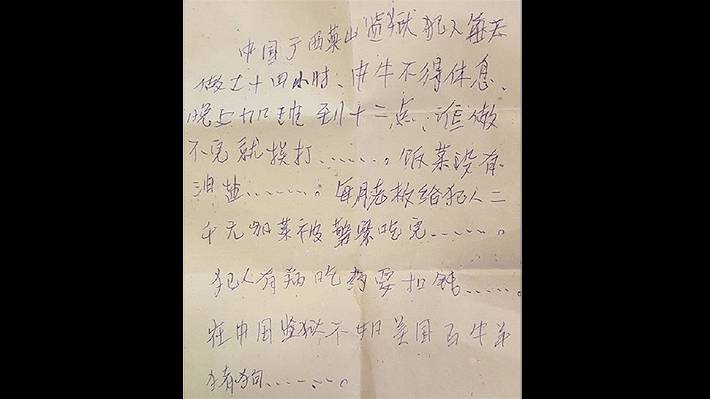 中国广西英山监狱犯人每天
做工十四小时、中午不得休息、
晚上加班到十二点、谁做
不完就挨打……。饭菜没有
油盐……。每月老板给犯人二
千元加菜被警察吃完……。
犯人有病吃药要扣钱……。
在中国监狱不如美国牛羊
猪狗……。